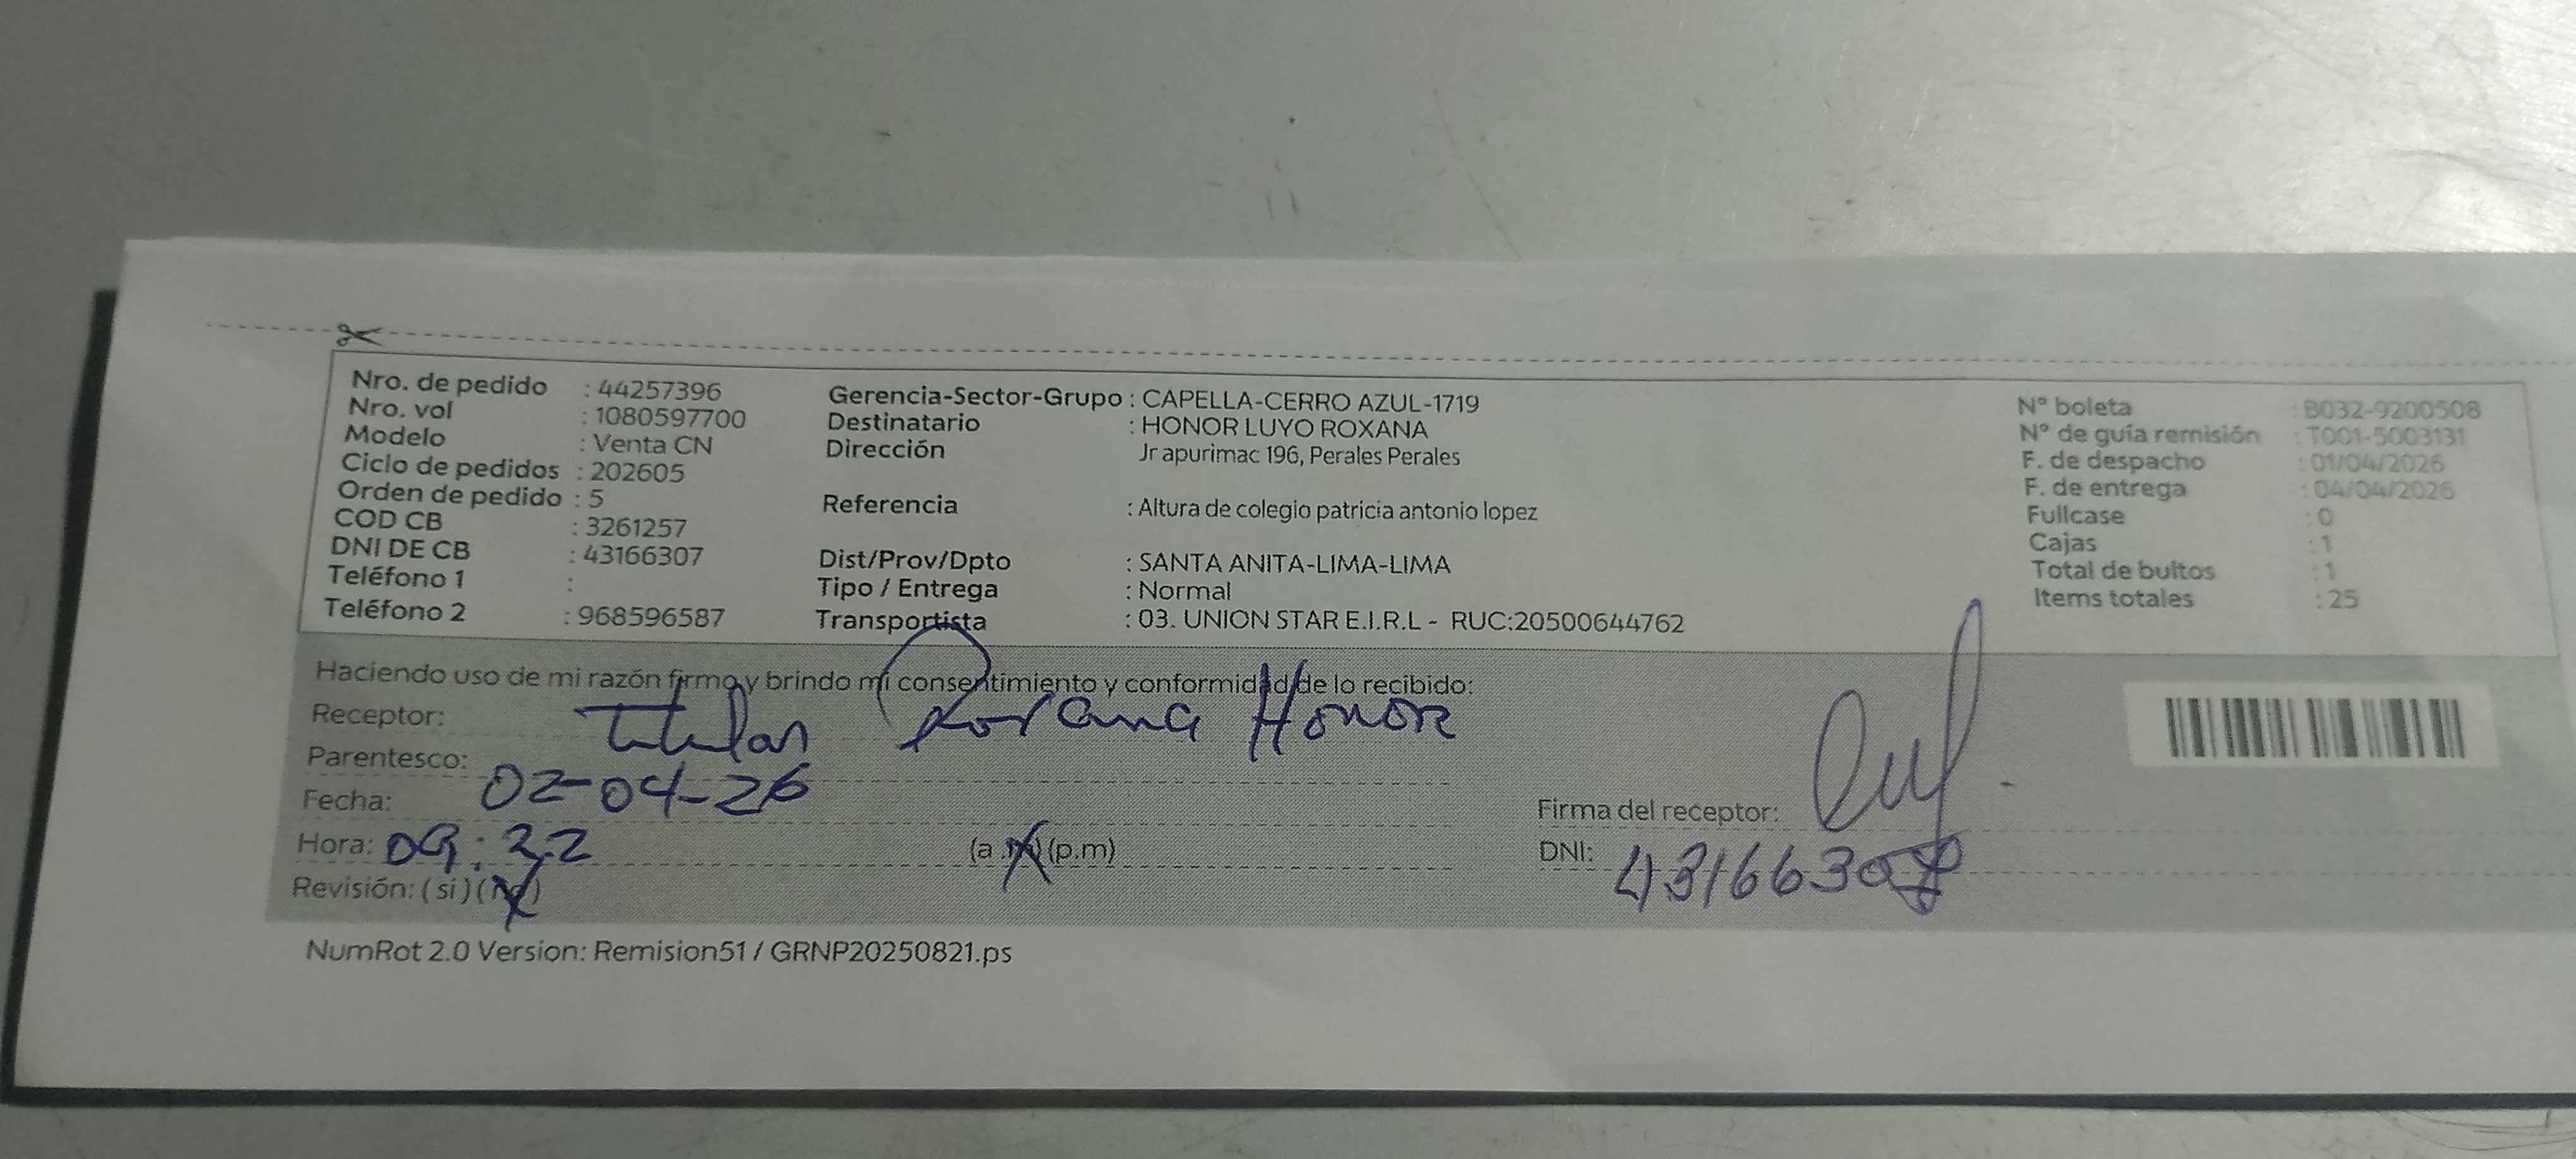 Nro. de pedido : 44257396
Nro. vol : 1080597700
Modelo : Venta CN
Ciclo de pedidos : 202605
Orden de pedido : 5
COD CB : 3261257
DNI DE CB : 43166307
Teléfono 1 :
Teléfono 2 : 968596587
Gerencia-Sector-Grupo : CAPELLA-CERRO AZUL-1719
Destinatario : HONOR LUYO ROXANA
Dirección Jr apurimac 196, Perales Perales
Referencia : Altura de colegio patricia antonio lopez
Dist/Prov/Dpto : SANTA ANITA-LIMA-LIMA
Tipo / Entrega : Normal
Transportista : 03. UNION STAR E.I.R.L - RUC:20500644762
N° boleta : B032-9200508
N° de guía remisión : T001-5003131
F. de despacho : 01/04/2026
F. de entrega : 04/04/2026
Fullcase : 0
Cajas : 1
Total de bultos : 1
Items totales : 25
Haciendo uso de mi razón firmo y brindo mi consentimiento y conformidad de lo recibido:
Receptor: Titular Roxana Honor
Parentesco:
Fecha: 02-04-26
Hora: 09:22 (a.m) (p.m)
Revisión: (si) (no)
Firma del receptor:
DNI: 43166307
NumRot 2.0 Version: Remision51 / GRNP20250821.ps